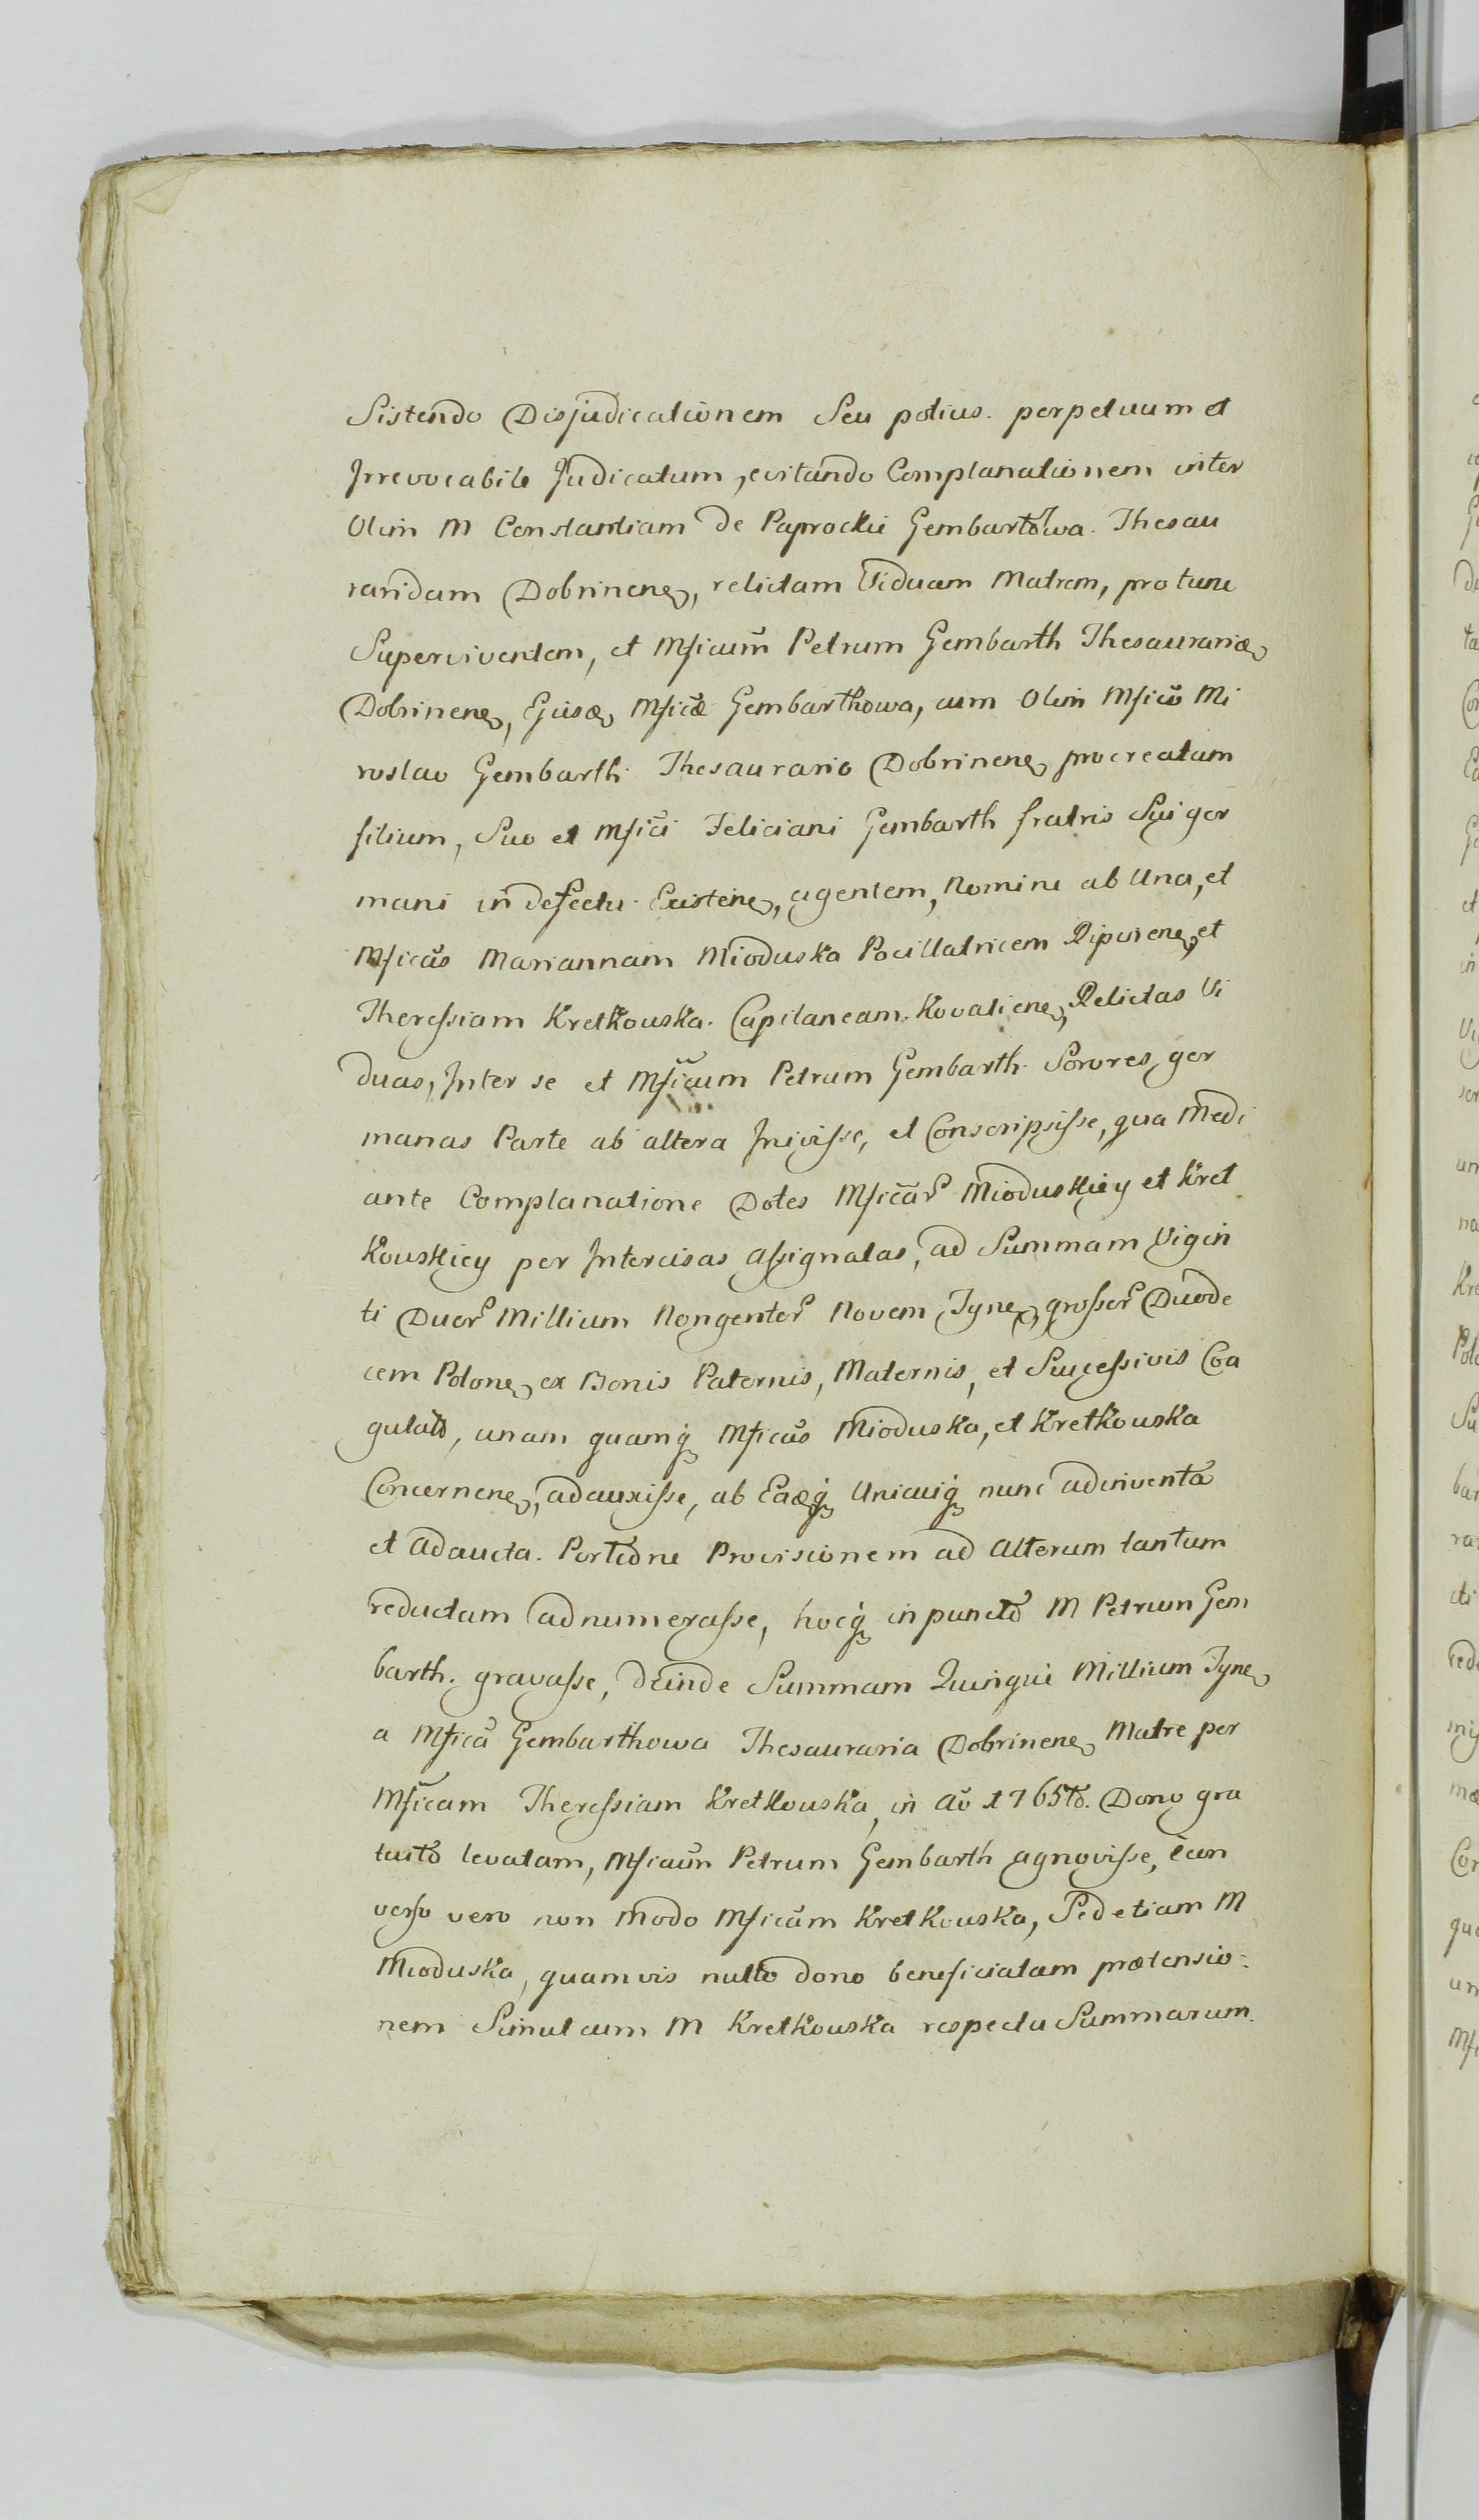 Sistendo Disjudicationem Seu potius perpetuum et
Irrevocabile Judicatum, evitando Complanationem inter
Olim M Constantiam de Paprockie Gembartowa Thesau
rariam Dobrinenę, relictam Viduam Matrem, pro tunc
Superviventem, et Mficum̃ Petrum Gembarth Thesaurariæ
Dobrinenę, Ejusæ Mficæ Gembarthowa, cum Olim Mfico Mi
roslao Gembarth Thesaurario Dobrinenę procreatum
filium, Suo et Mfici Feliciani Gembarth fratris Sui ger
mani in defectu Existenę, agentem, Nomine ab Una, et
Mficas Mariannam Mioduska Pocillatricem Ripinenę, et
Theressiam Kretkouska Capitaneam Kovalienę, Relictas Vi
duas, Inter se et Mficum Petrum Gembarth Sorores ger
manas Parte ab altera Inivisse, et Conscripsisse, qua Medi
ante Complanatione Dotes Mficar̃ Mioduskiey et Kret
Kouskiey per Intercisas assignatas, ad Summam Vigin
ti Duor̃ Millium Nongentor̃ Novem Tynę, grossor̃ Duode
cem Polonę ex Bonis Paternis, Maternis, et Successivis Coa
gulatis, unam quamq Mficas Mioduska, et Kretkouska
Concernenę, adauxisse, ab Eaæq Unicuiq nunc adinventa
et Adaucta Portione Provisionem ad Alterum tantum
reductam adnumerasse, hocq in puncto M Petrum Gem
barth. gravasse, deinde Summam Quinque Millium Tynę
a Mfica Gembarthowa Thesauraria Dobrinenę Matre per
Mficam Theressiam Kretkouska, in Ao 1765to. Dono gra
tuito levatam, Mficum Petrum Gembarth agnovisse, e con
verso vero non modo Mficam Kretkouska, Sed etiam M
Mioduska, quamvis nullo dono beneficiatam prætensio-
nem Simul cum M Kretkouska respectu Summarum.